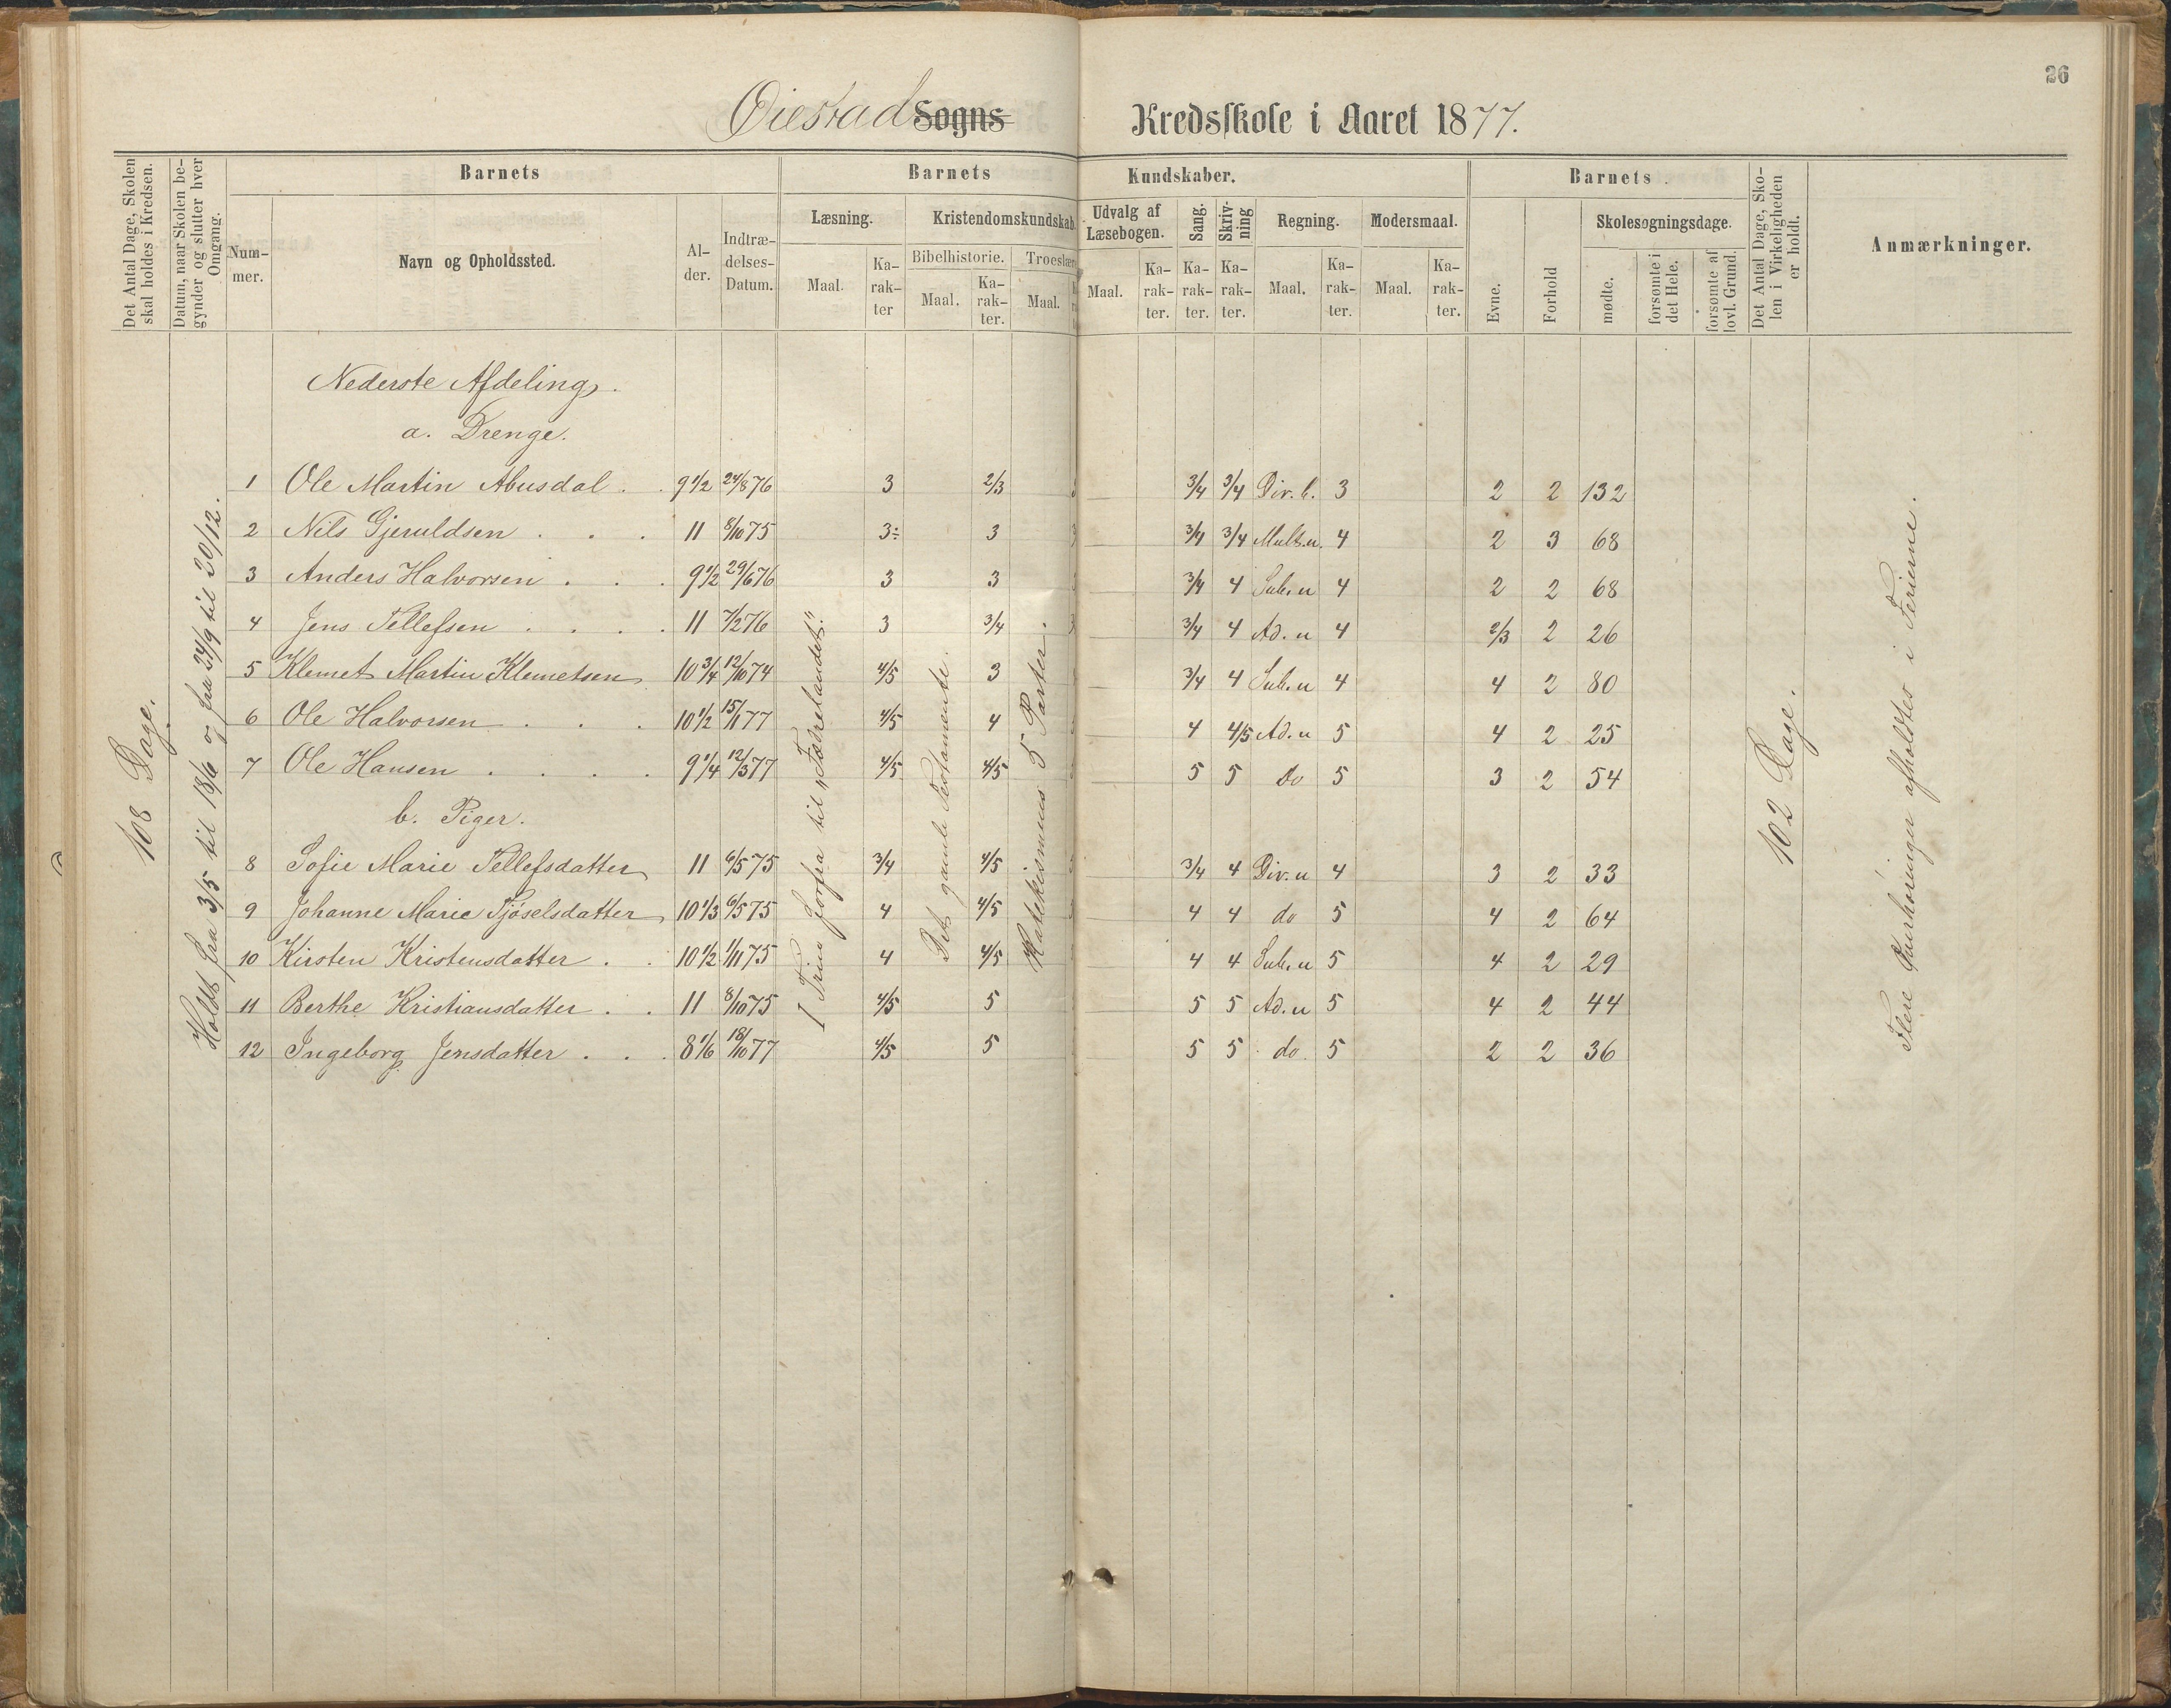 26
Øiestad Sogns Kredsskole i Aaret 1877.
Det Antal Dage, Skolen skal holdes i Kredsen.
Datum, naar Skolen begynder og slutter hver Omgang.
Barnets
Barnets Kundskaber.
Barnets
Det Antal Dage, Skolen i Virkeligheden er holdt.
Anmærkninger.
Nummer.
Navn og Opholdssted.
Alder.
Indtrædelses-Datum.
Læsning.
Kristendomskundskab.
Udvalg af Læsebogen.
Sang.
Skrivning
Regning.
Modersmaal.
Evne.
Forhold
Skolesøgningsdage.
Bibelhistorie.
Troeslære
Maal.
Karakter
Maal.
Karakter.
Maal.
Maal.
Karakter.
Karakter.
Karakter.
Maal.
Karakter.
Maal.
Karakter.
mødte.
forsømte i det Hele.
forsømte af lovl. Grund.
108 Dage.
Holdt fra 3/5 til 18/6 og fra 24/9 til 20/12.
Nederste Afdeling.
a. Drenge.
1 Ole Martin Abusdal . . 9 1/2 24/8 76 3 2/3 3/4 3/4 Div. b. 3 2 2 132
2 Nils Gjeruldsen . . . 11 8/10 75 3÷ 3 3/4 3/4 Mult. u. 4 2 3 68
3 Anders Halvorsen . . . 9 1/2 29/6 76 3 3 3/4 4 Sub. u 4 2 2 68
4 Jens Tellefsen . . . . 11 7/2 76 3 3/4 3/4 4 Ad. u 4 2/3 2 26
5 Klemet Martin Klemetsen 10 3/4 12/10 74 4/5 3 3/4 4 Sub. u 4 4 2 80
6 Ole Halvorsen . . . 10 1/2 15/1 77 4/5 4 4 4/5 Ad. u 5 4 2 25
7 Ole Hansen . . . . 9 1/4 12/3 77 4/5 4/5 5 5 Do 5 3 2 54
b. Piger.
8 Sofie Marie Tellefsdatter 11 6/5 75 3/4 4/5 3/4 4 Div. u 4 3 2 33
9 Johanne Marie Tjöselsdatter 10 1/3 6/5 75 4 4/5 4 4 do 5 4 2 64
10 Kirsten Kristensdatter . . 10 1/2 1/11 75 4 4/5 4 4 Sub. u 5 4 2 29
11 Berthe Kristiansdatter . . 11 8/10 75 4/5 5 5 5 Ad. u 5 4 2 44
12 Ingeborg Jensdatter . . . 8 1/6 18/10 77 4/5 5 5 5 do. 5 2 2 36
I Trin forfra til „Fædrelandet."
Det gamle Testamente.
Katekismens 5 Parter.
102 Dage.
Flere afholdtes i Ferierne.